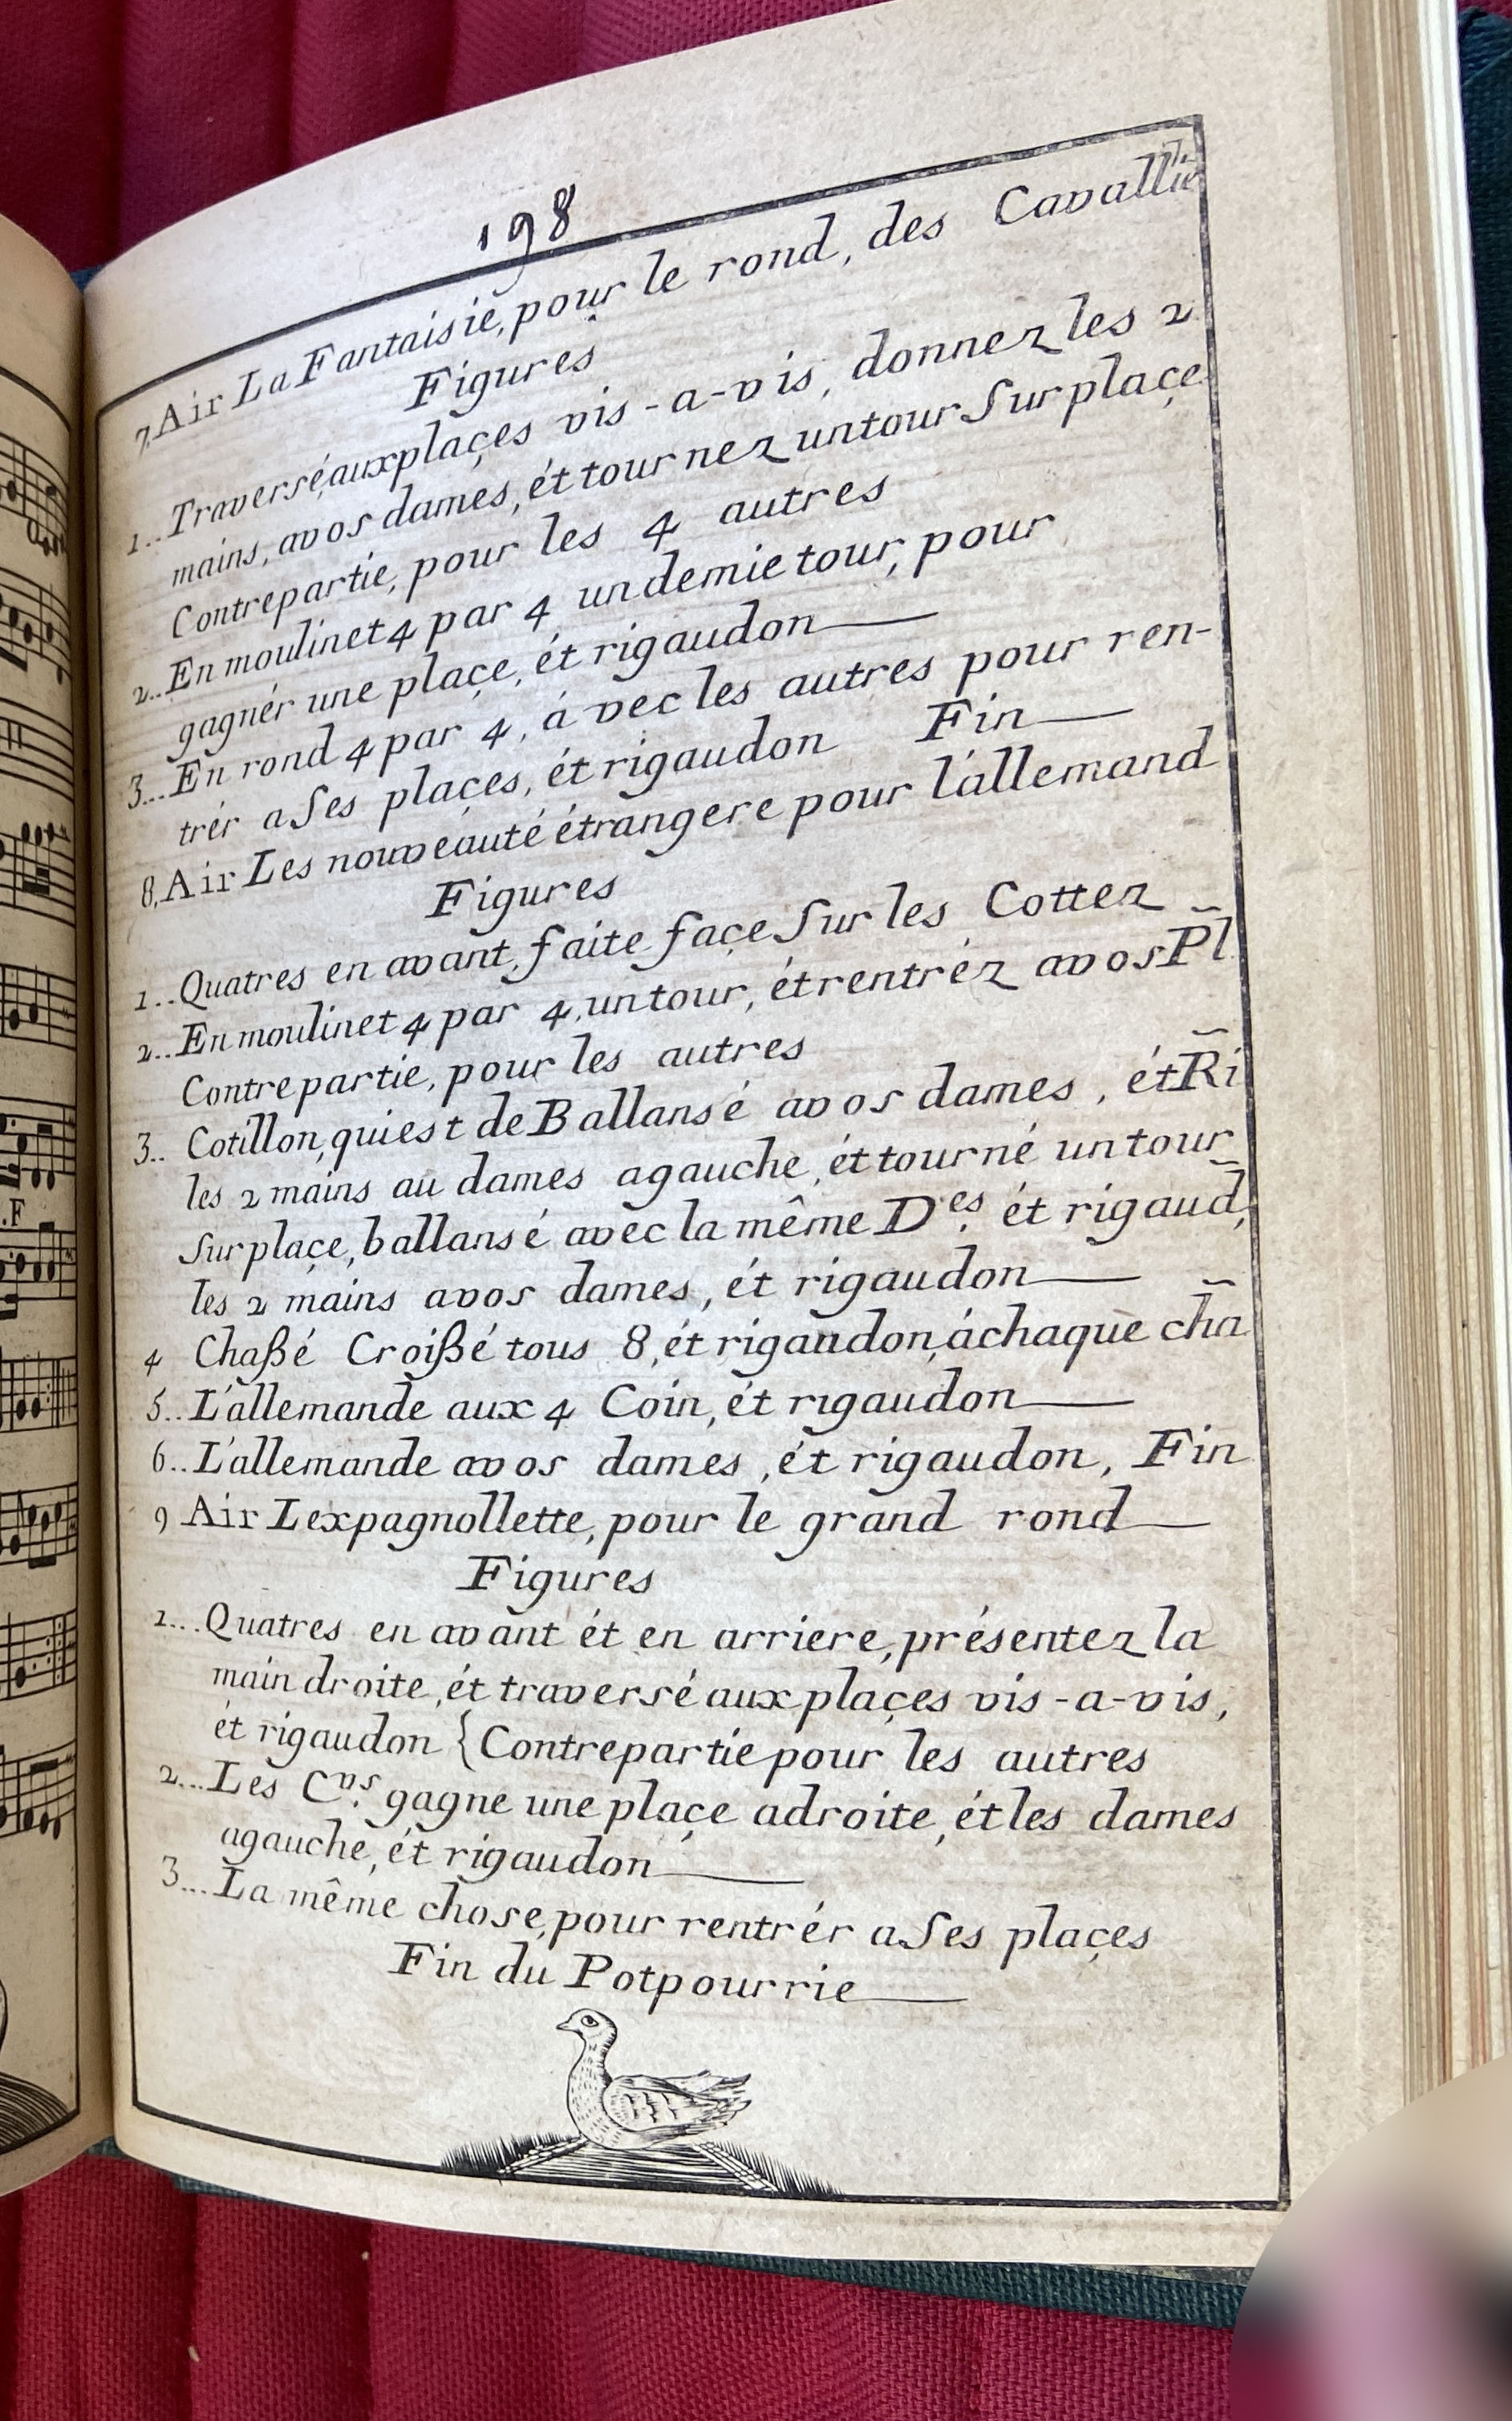 198
7. Air La Fantaisie, pour le rond, des Cavallie
Figures
1.. Traversé aux plaçes vis-a-vis, donnez les 2
mains, a vos dames, ét tournez un tour Sur plaçe
Contrepartie, pour les 4 autres
2.. En moulinet 4 par 4 un demie tour, pour
gagnér une plaçe, ét rigaudon
3... En rond 4 par 4, ávec les autres pour ren-
trér a Ses plaçes, ét rigaudon Fin
8. Air Les nouveáuté étrangere pour l'állemand
Figures
1.. Quatres en avant, faite façe Sur les Cottez
2.. En moulinet 4 par 4, un tour, ét rentréz a vos Pl
Contrepartie, pour les autres
3.. Cotillon, qui est de Ballansé a vos dames, ét Ri
les 2 mains au dames a gauche, ét tourné un tour
Sur plaçe, ballansé avec la même D.es ét rigaud,
les 2 mains a vos dames, ét rigaudon
4 Chaßé Croißé tous 8, ét rigaudon, áchaque cha
5.. L'állemande aux 4 Coin, ét rigaudon
6.. L'állemande a vos dames, ét rigaudon, Fin
9 Air Lexpagnollette, pour le grand rond
Figures
1... Quatres en avant ét en arriere, présentez la
main droite, ét traversé aux plaçes vis-a-vis,
ét rigaudon { Contrepartie pour les autres
2... Les C.vs gagne une plaçe adroite, ét les dames
agauche, ét rigaudon
3... La même chose, pour rentrér a Ses plaçes
Fin du Potpourrie